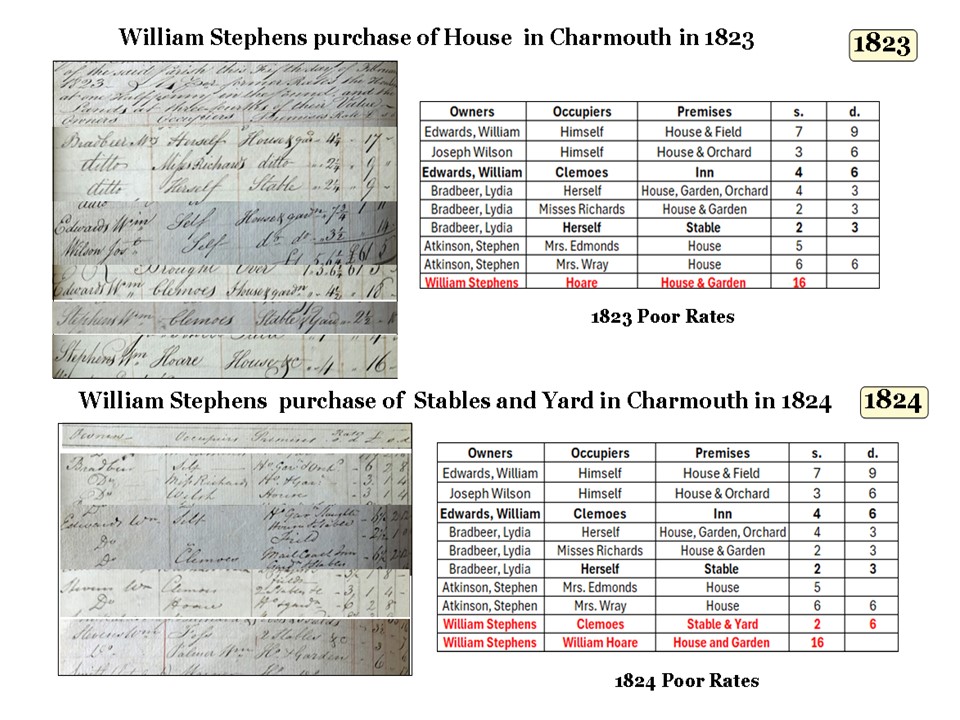 William Stephens purchase of House in Charmouth in 1823
1823
of the said parish this
1823
at one half penny in the pound and the
three fourths of their Value
Owners Occupiers Premises Rate £ s
Bradbeer Mrs Herself House & gar 4½ " 17 "
ditto Miss Richards ditto " 2¼ " 9 "
ditto Herself Stable " 2¼ " 9 "
Edwards Wm Self House & gardn
Wilson Jos Self do do
Brought Over
Edwards Wm Clemoes House & gardn " 4½ " 18 "
Stephens Wm Clemoes Stable & Yard
Stephens Wm Hoare House &c " 4 " 16 "
Owners Occupiers Premises s. d.
Edwards, William Himself House & Field 7 9
Joseph Wilson Himself House & Orchard 3 6
Edwards, William Clemoes Inn 4 6
Bradbeer, Lydia Herself House, Garden, Orchard 4 3
Bradbeer, Lydia Misses Richards House & Garden 2 3
Bradbeer, Lydia Herself Stable 2 3
Atkinson, Stephen Mrs. Edmonds House 5
Atkinson, Stephen Mrs. Wray House 6 6
William Stephens Hoare House & Garden 16
1823 Poor Rates
William Stephens purchase of Stables and Yard in Charmouth in 1824
1824
Owners Occupiers Premises
Bradbeer Self
Do Miss Richards Ho & Gar - 3 1 4
Do Welsh House - 3 1 4
Edwards Wm Self
Do Field
Do Clemoes Mail Coach Inn
Field
Clemoes
Do
2 Stables &c
Palmer Wm Ho & Garden
Owners Occupiers Premises s. d.
Edwards, William Himself House & Field 7 9
Joseph Wilson Himself House & Orchard 3 6
Edwards, William Clemoes Inn 4 6
Bradbeer, Lydia Herself House, Garden, Orchard 4 3
Bradbeer, Lydia Misses Richards House & Garden 2 3
Bradbeer, Lydia Herself Stable 2 3
Atkinson, Stephen Mrs. Edmonds House 5
Atkinson, Stephen Mrs. Wray House 6 6
William Stephens Clemoes Stable & Yard 2 6
William Stephens William Hoare House and Garden 16
1824 Poor Rates